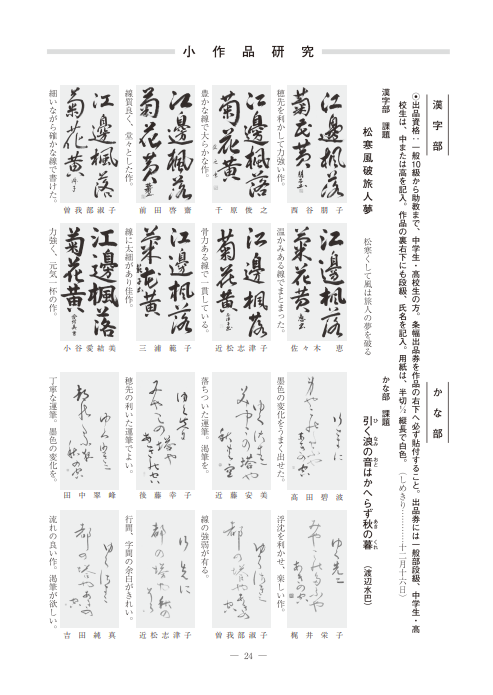 小作品研究
漢字部
◉出品資格：一般10級から助教まで、中学生・高校生の方。条幅出品券を作品の右下へ必ず貼付すること。出品券には一般部段級、中学生・高
校生は、中または高を記入。作品の裏右下にも段級、氏名を記入。用紙は、半切½縦長で白色。
（しめきり………十二月十六日）
漢字部 課題
松寒風破旅人夢
松寒くして風は旅人の夢を破る
江邊楓落
菊花黄
穂先を利かして力強い作。
西谷朋子
江邊楓落
菊花黄
豊かな線で大らかな作。
千原俊之
江邊楓落
菊花黄
線質良く、堂々とした作。
前田啓齋
江邊楓落
菊花黄
細いながら確かな線で書けた。
曽我部淑子
江邊楓落
菊花黄
温かみある線でまとまった。
佐々木恵
江邊楓落
菊花黄
骨力ある線で一貫している。
近松志津子
江邊楓落
菊花黄
線に太細があり佳作。
三浦範子
江邊楓落
菊花黄
力強く、元気一杯の作。
小谷愛結美
かな部
かな部 課題
引く浪の音はかへらず秋の暮
ひ なみ おと あき くれ
（渡辺水巴）
墨色の変化をうまく出せた。
高田碧波
落ちついた運筆。渇筆を。
近藤安美
穂先の利いた運筆でよい。
後藤幸子
丁寧な運筆。墨色の変化を。
田中翠峰
浮沈を利かせ、楽しい作。
梶井栄子
線の強弱が有る。
曽我部淑子
行間、字間の余白がきれい。
近松志津子
流れの良い作。渇筆が欲しい。
吉田純真
― 24 ―